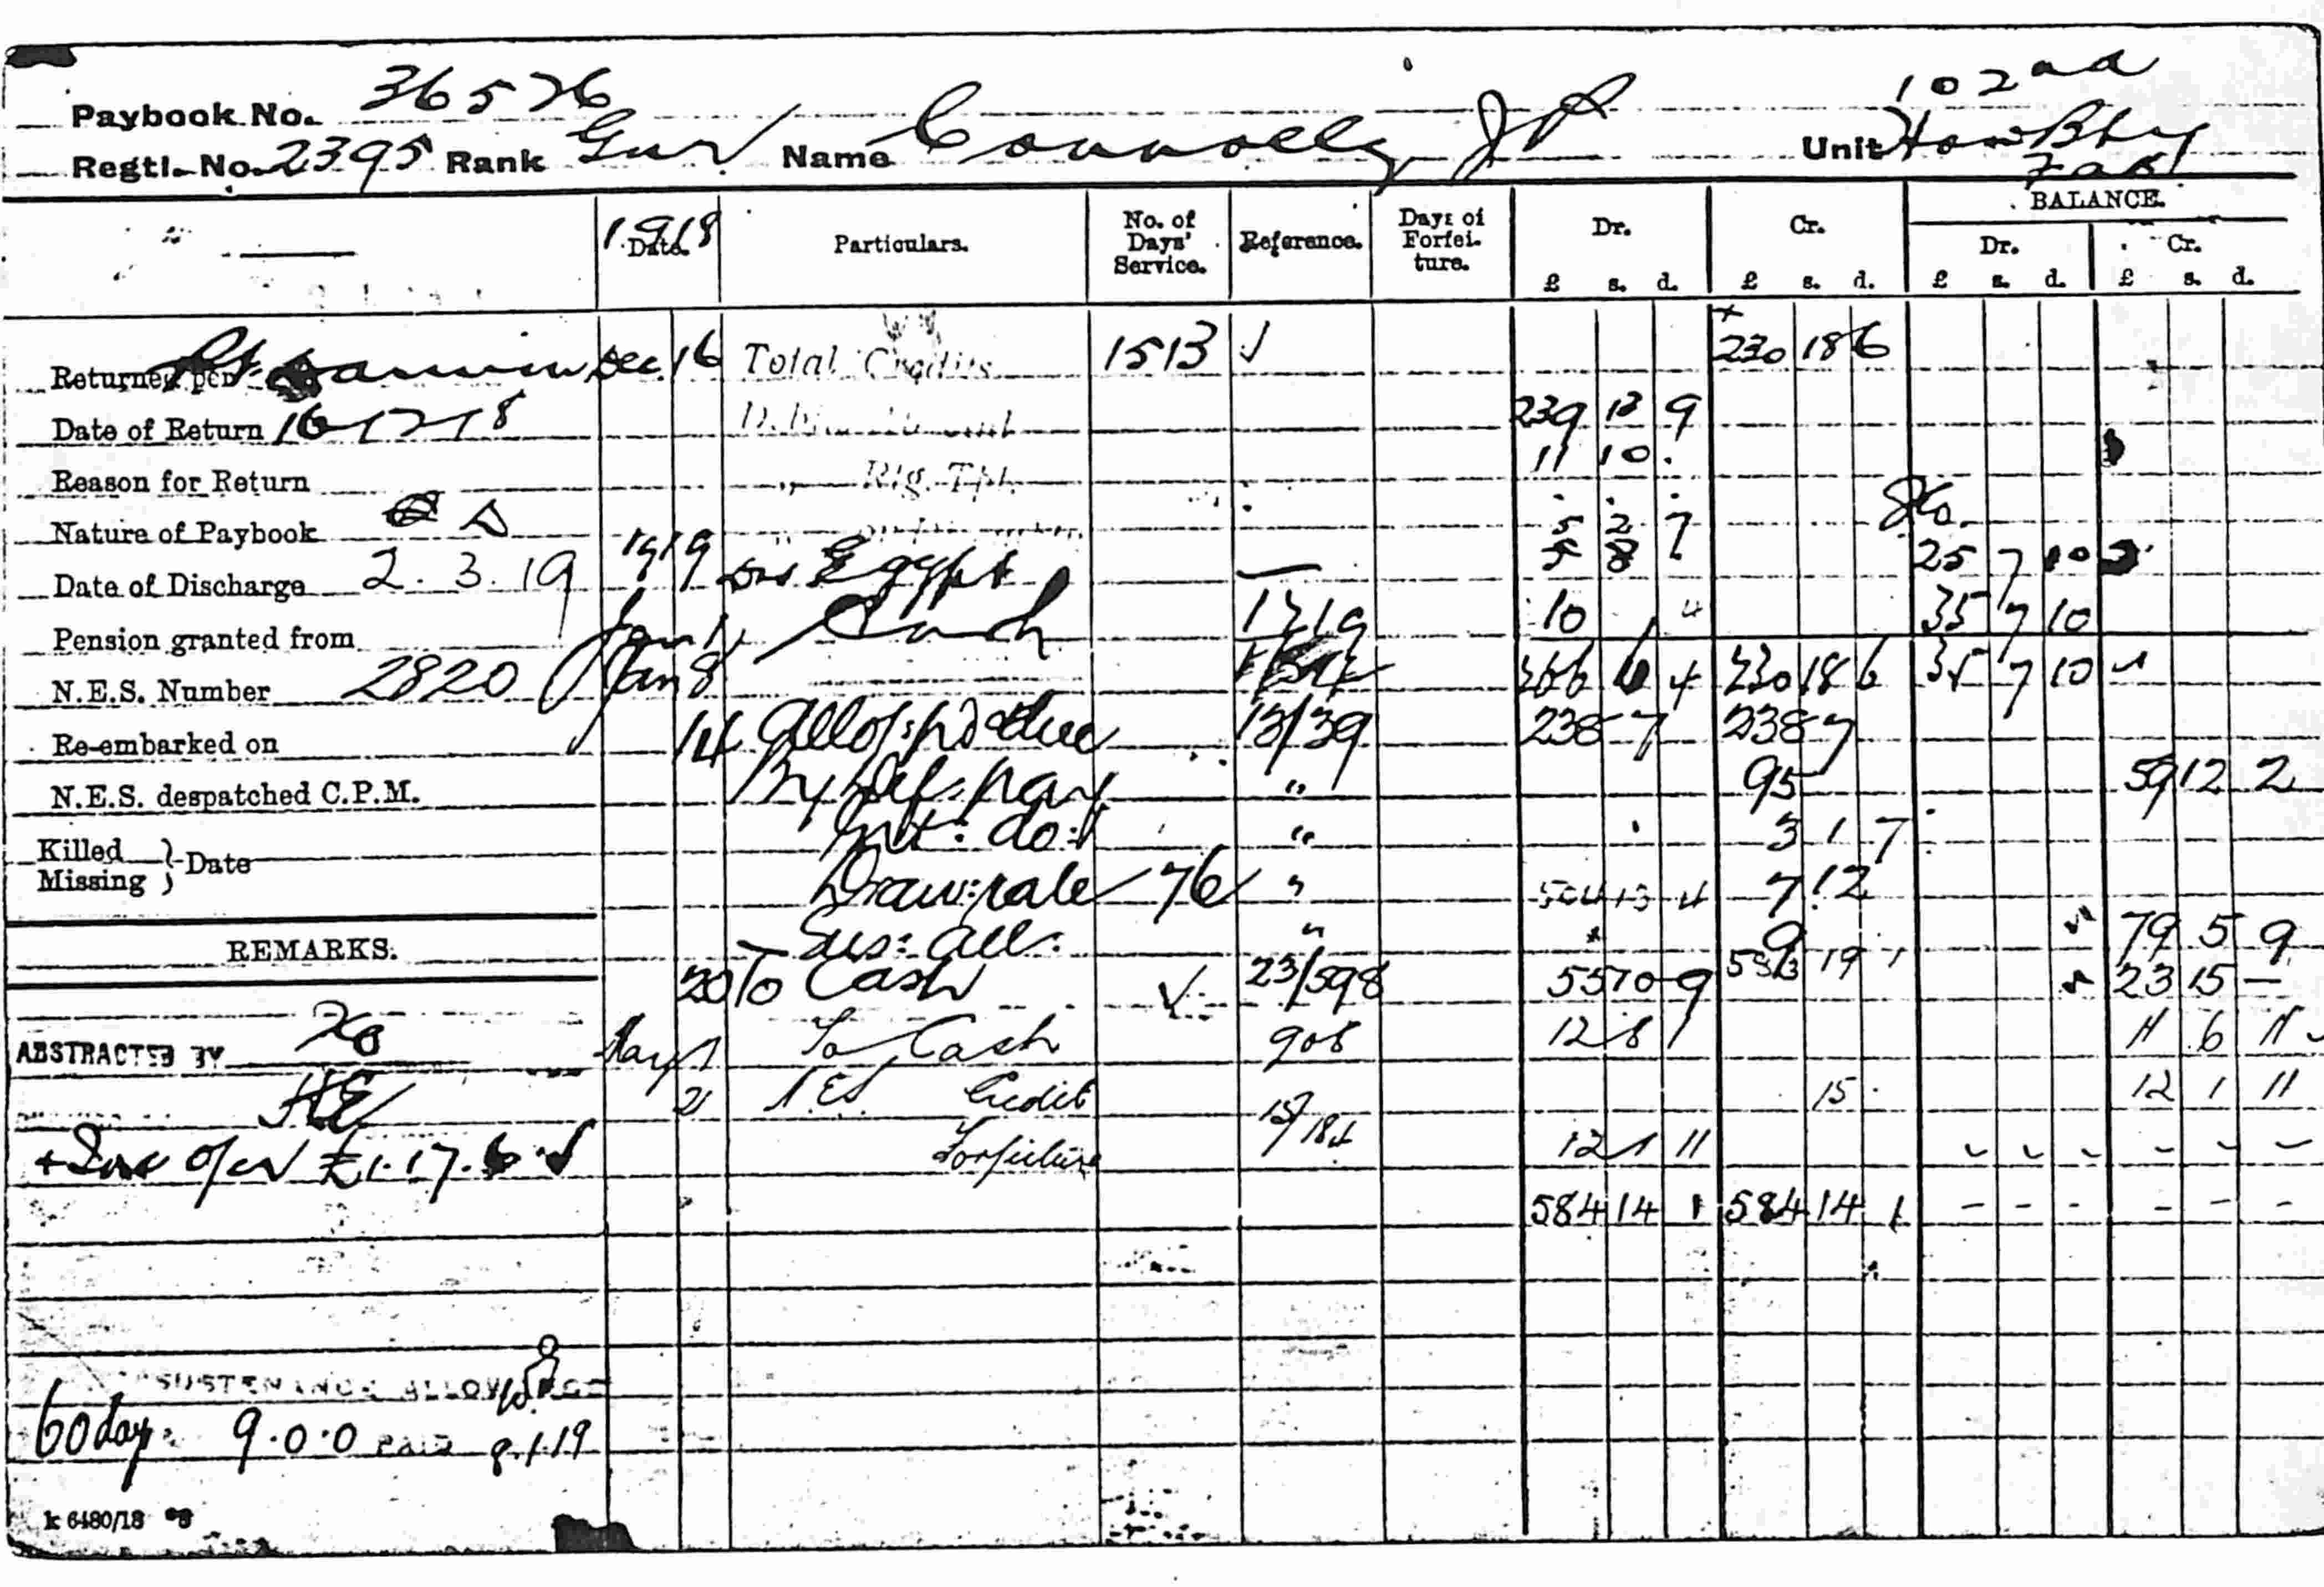 102nd
Paybook No. 36526
Regtl. No. 2395 Rank Gnr Name Connolly J P Unit How Bty
FAB
1918 Date. Particulars. No. of Days' Service. Reference. Days of Forfeiture. Dr. £ s. d. Cr. £ s. d. BALANCE. Dr. £ s. d. Cr. £ s. d.
Returned per Dec 16 Total Credits 1513 ✓ + 230 18 6
Date of Return 16-12-18 239 13 9
Reason for Return Rtg. Tpt. 11 10
Nature of Paybook 5 2 7
Date of Discharge 2.3.19 1919 Egypt 5 8 25 7 10
Pension granted from Jan 1 Cash 1219 10 35 7 10
N.E.S. Number 2820 Jan 8 266 6 4 230 18 6 35 7 10
Re-embarked on 14 Allot: pd due 13/39 238 7 238 7
N.E.S. despatched C.P.M. By Def: pay " 95 59 12 2
Killed Missing } Date Int: do: " 3 1 7
Draw: rate 76 " 504 13 4 7 12
REMARKS. Sus: all: " 9 79 5 9
20 To Cash ✓ 23/598 55 10 9 583 19 1 23 15 —
ABSTRACTED BY May 1 To Cash 908 12 8 1 11 6 11
21 N.E.S. Credit 15 12 1 11
+ £1.17.6 ✓ Forfeiture 12 1 11 - - - - - -
584 14 1 584 14 1 - - - - - -
SUSTENANCE ALLOWANCE
60 days 9.0.0 PAID 8.1.19
k 6480/18